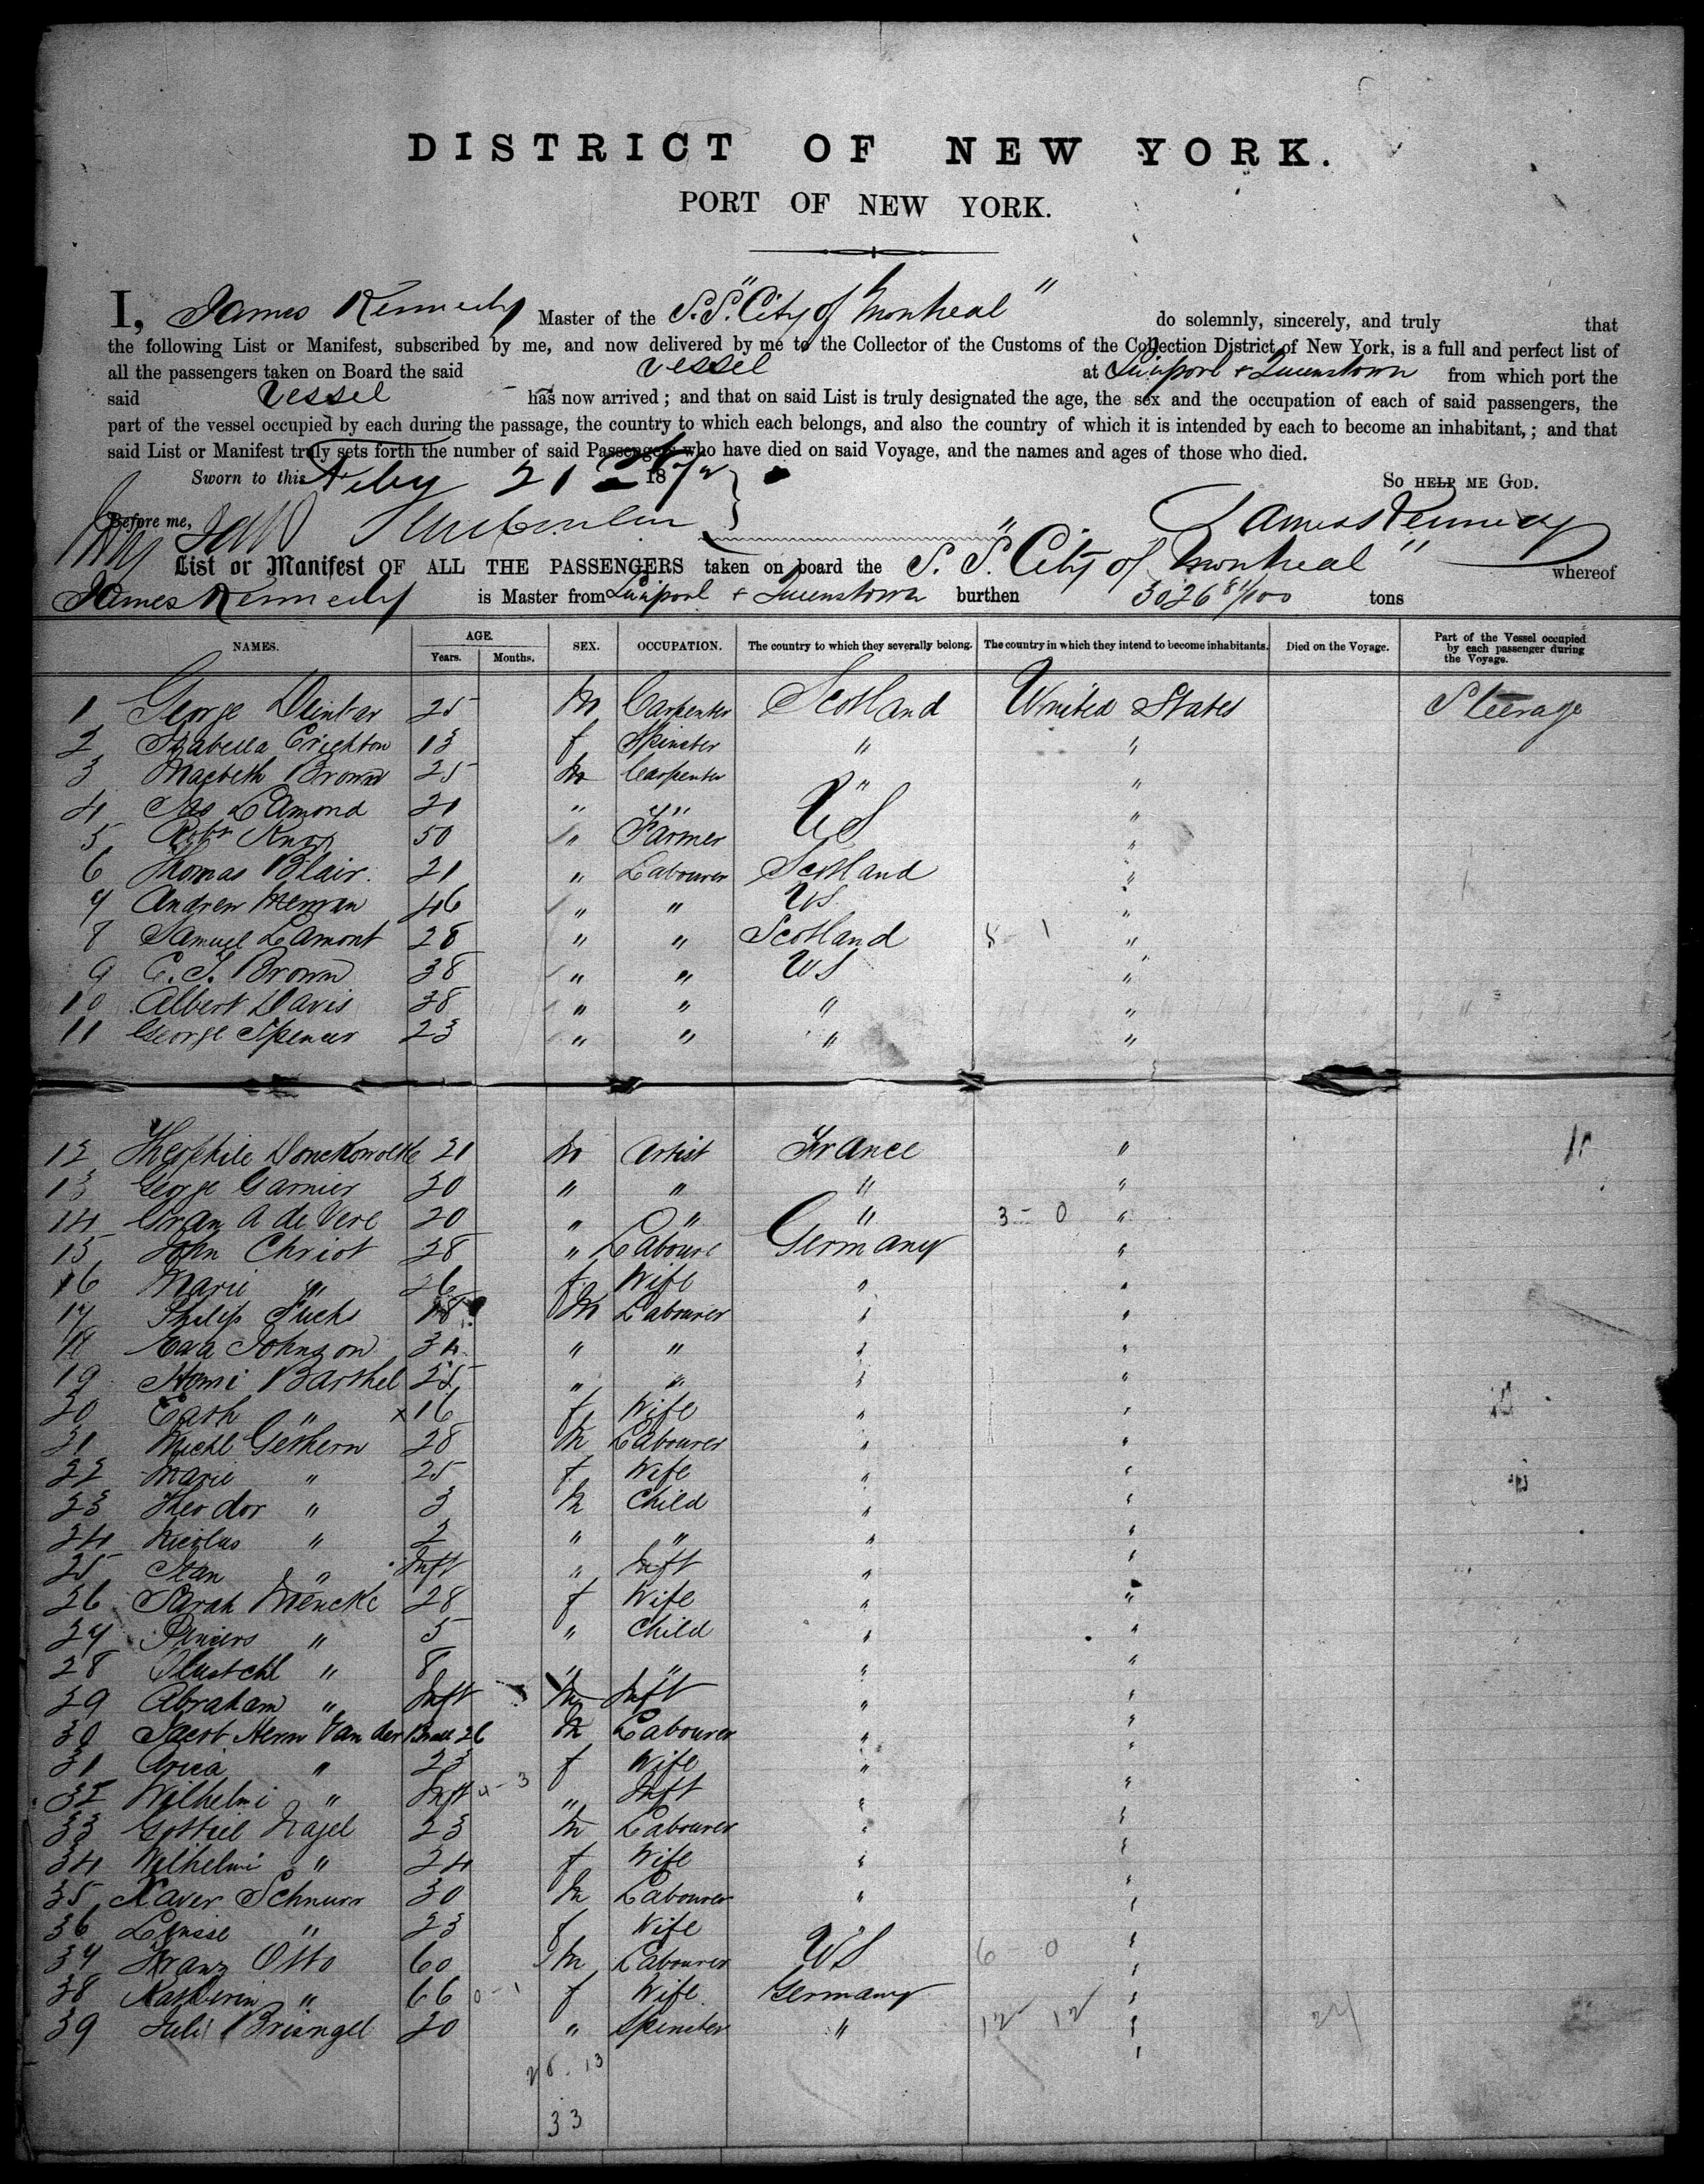 DISTRICT OF NEW YORK.
PORT OF NEW YORK.
I, James Kennedy Master of the S.S. "City of Montreal" do solemnly, sincerely, and truly that
the following List or Manifest, subscribed by me, and now delivered by me to the Collector of the Customs of the Collection District of New York, is a full and perfect list of
all the passengers taken on Board the said vessel at Liverpool & Queenstown from which port the
said vessel has now arrived; and that on said List is truly designated the age, the sex and the occupation of each of said passengers, the
part of the vessel occupied by each during the passage, the country to which each belongs, and also the country of which it is intended by each to become an inhabitant,; and that
said List or Manifest truly sets forth the number of said Passengers who have died on said Voyage, and the names and ages of those who died.
Sworn to this Feby 21 187 So HELP ME GOD.
Before me, James Kennedy
List or Manifest OF ALL THE PASSENGERS taken on board the S. S. "City of Montreal" whereof
James Kennedy is Master from Liverpool & Queenstown burthen 3026 81/100 tons
NAMES. AGE. Years. Months. SEX. OCCUPATION. The country to which they severally belong. The country in which they intend to become inhabitants. Died on the Voyage. Part of the Vessel occupied by each passenger during the Voyage.
1 George 25 M Carpenter Scotland United States Steerage
2 Isabella Crighton 13 f Spinster " "
3 Macbeth Brown 25 M Carpenter " "
4 Jas Lamond 21 " " US "
5 Robt Knox 50 " Farmer "
6 Thomas Blair 21 " Labourer Scotland "
7 Andrew 46 " " US "
8 Samuel Lamont 28 " " Scotland "
9 C. J. Brown 38 " " US "
10 Albert Davis 38 " " " "
11 George Spencer 23 " " " "
12 Theophile 21 M Artist France " "
13 George Garnier 30 " " " "
14 A de Vere 20 " " " 3 - 0 "
15 John Christ 28 " Laboure Germany "
16 Marie " 26 f Wife " "
17 Philip Fuchs 18 M Labourer " "
18 Johnson " " " "
19 Barthel 25 " " " "
20 Cath " 16 f Wife " "
21 Michl Gethern 28 M Labourer " "
22 Marie " 25 f Wife " "
23 Theodor " 3 M Child " "
24 Nicolas " 2 " " " "
25 " Inft " Inft " "
26 Sarah Mencke 28 f Wife " "
27 " 5 " Child " "
28 " 8 " " " "
29 Abraham " Inft M Inft " "
30 Jacob Herm Van der 26 M Labourer " "
31 " 23 f Wife " "
32 Wilhelmi " Inft " Inft " "
33 Gottlieb Nagel 23 M Labourer " "
34 Wilhelmi " 24 f Wife " "
35 Xaver Schnurr 30 M Labourer " "
36 " 23 f Wife "
37 Franz Otto 60 M Labourer US 6 - 0 "
38 Katherin " 66 0 - 1 f Wife Germany "
39 20 " Spinster " 12 12 "
13
33